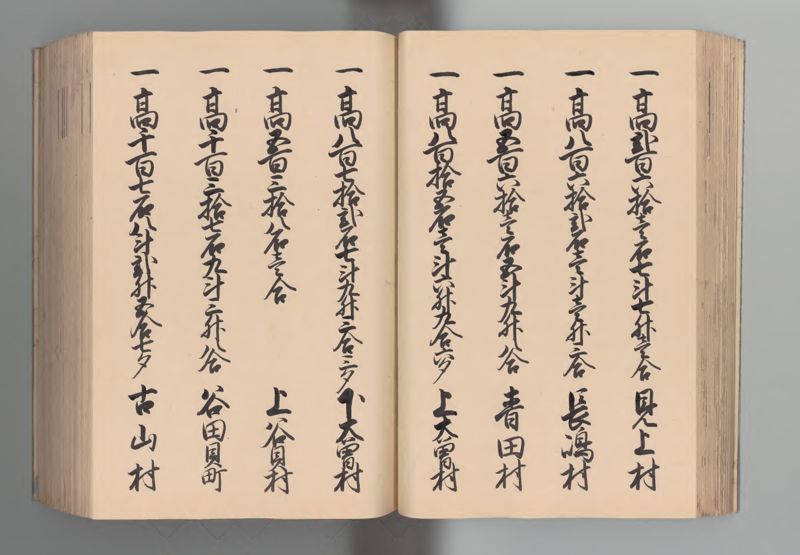 一高弐百六拾壱石七斗七升壱合 見上村
一高八百六拾弐石壱斗壱升二合 長嶋村
一高五百六拾壱石五斗九升八合 青田村
一高八百拾五石壱斗六升九合六夕 上大曽村
一高八百七拾弐石七斗九升二合二夕 下大曽村
一高五百三拾八石壱合 上谷貝村
一高千百三拾七石九斗二升八合 谷田貝町
一高千百七石八斗弐升五合七夕 古山村